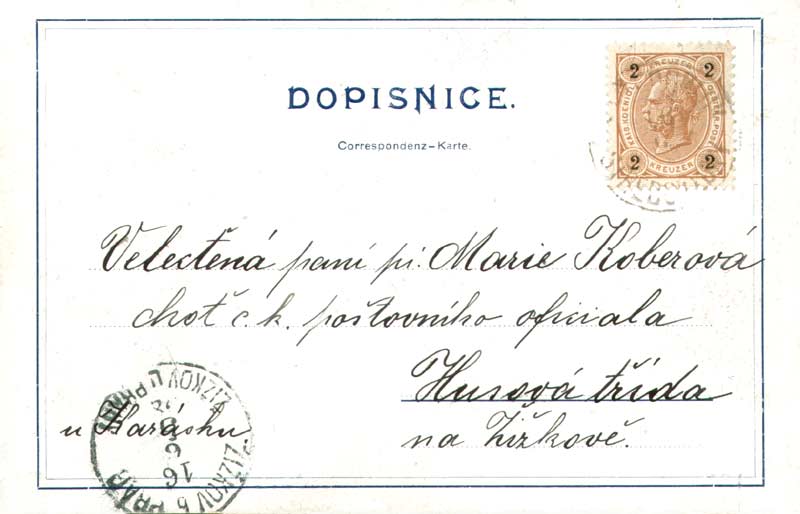 DOPISNICE.
Correspondenz-Karte.
2 KREUZER 2
KAIS. KOENIGL. OESTERR. POST
2 KREUZER 2
Velectěná paní pí. Marie Koberová
choť c. k. poštovního oficiala
Husová třída
u Karásku
na Žižkově.
ŽIŽKOV U PRAHY
ZIZKOV b PRAG
16